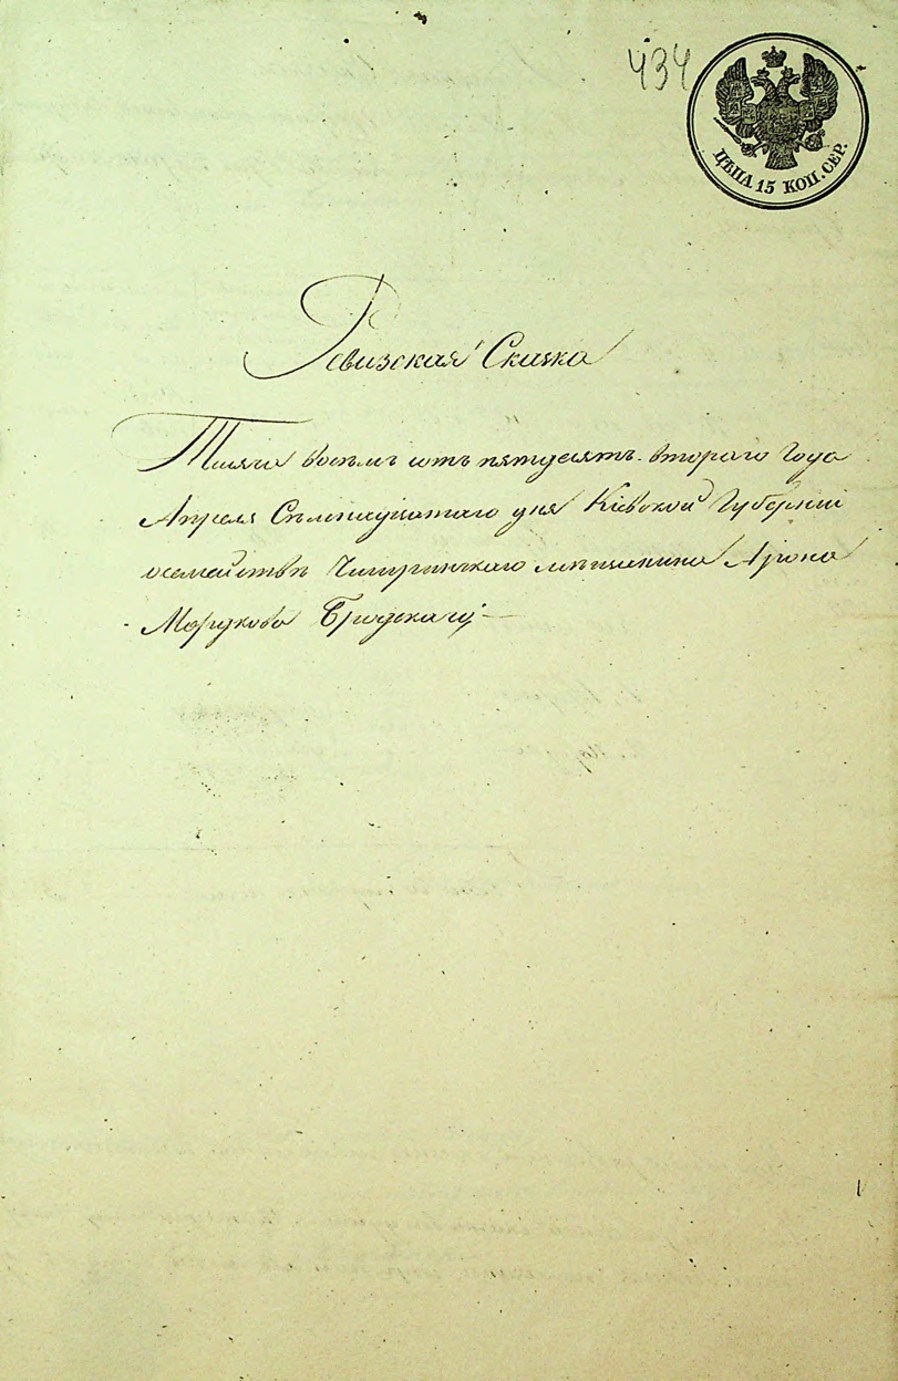 434
ЦѢНА 15 КОП. СЕР.
Ревизская Сказка
Тысяча восемъ сотъ пятдесятъ втораго Года
Апреля Семнадцатаго дня Кіевской Губерніи
осемействѣ Чигиринскаго мѣщанина Арона
Мордкова Бродскаго